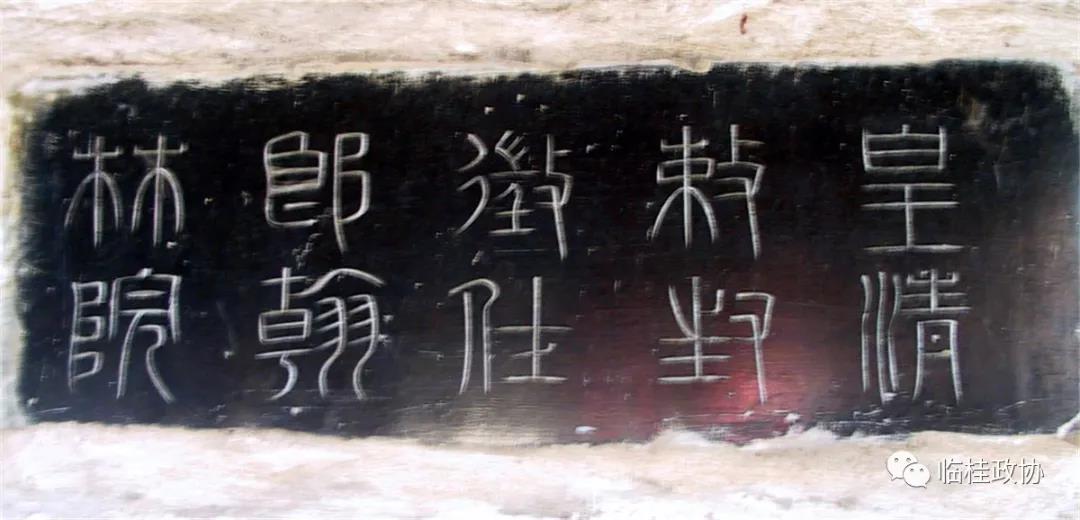 皇清
敕封
徵仕
郎翰
林院
临桂政协